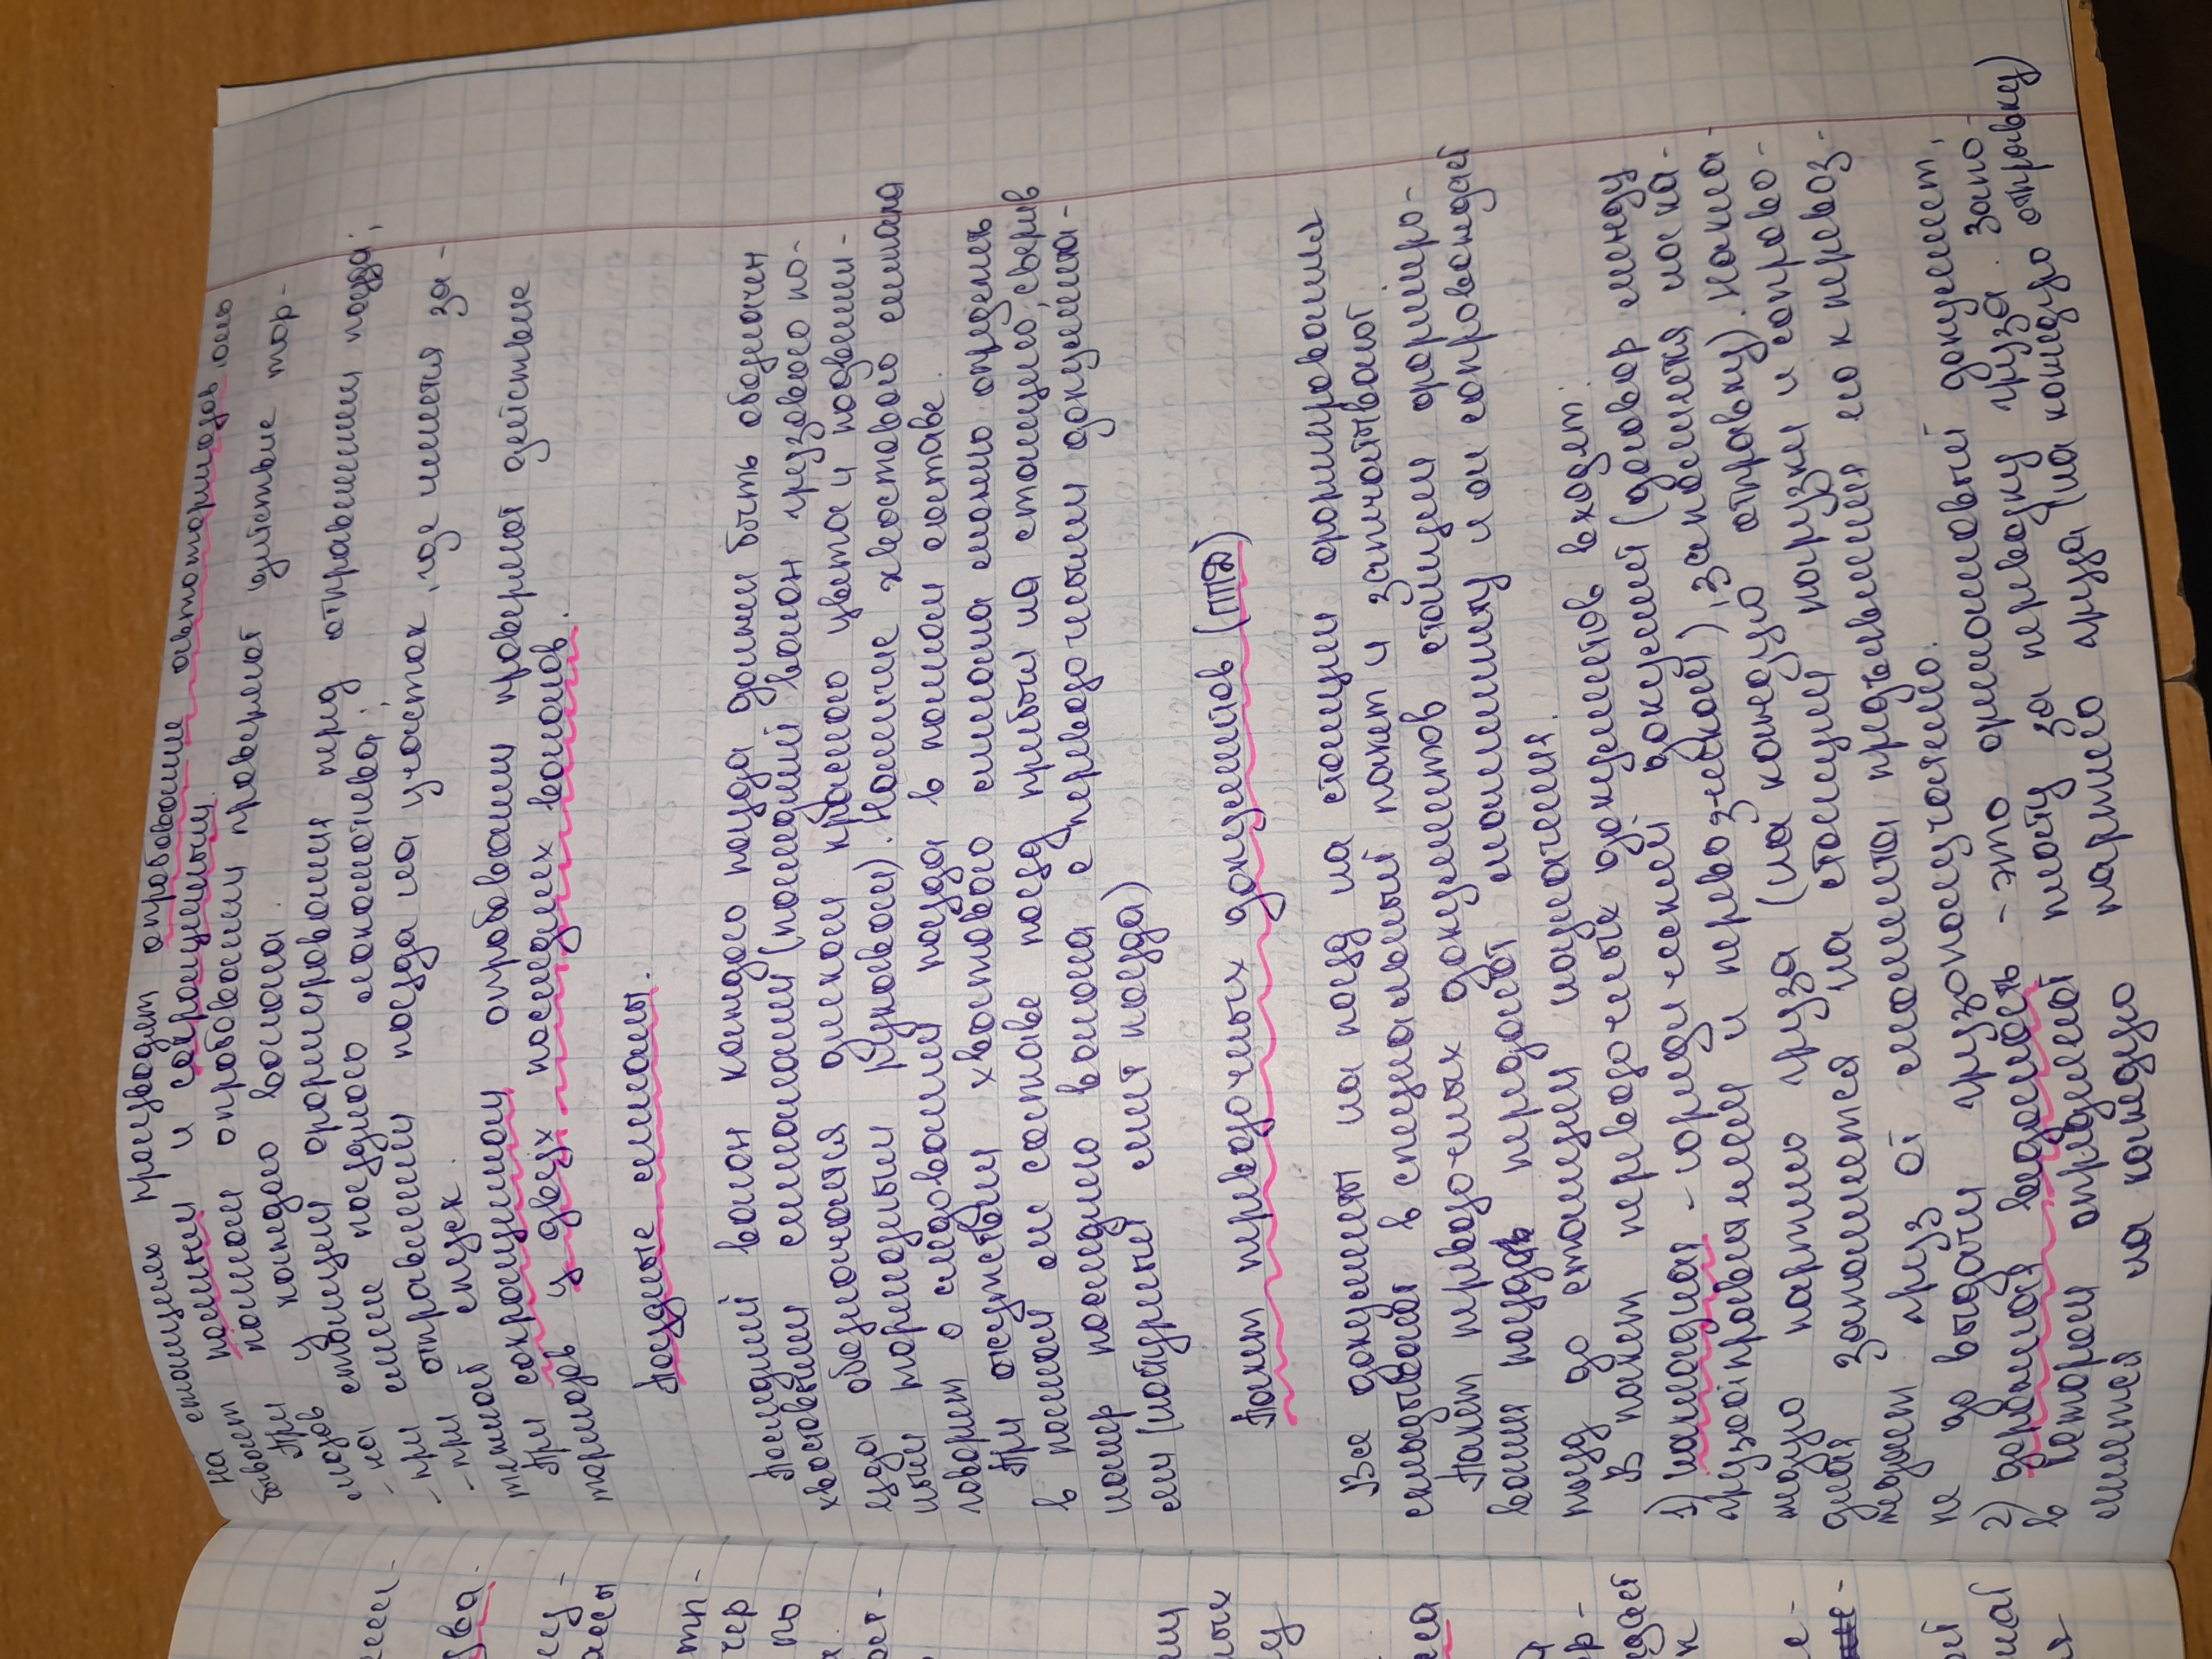 На станциях производят опробование автотормозов. Оно
бывает полным и сокращенным.
При полном опробовании проверяют действие тор-
мозов у каждого вагона.
- на станции формирования перед отправлением поезда;
- при смене поездного локомотива;
- при отправлении поезда на участок, где имеется за-
тяжной спуск.
При сокращенном опробовании проверяют действие
тормозов у двух последних вагонов.
Поездные сигналы.
Последний вагон каждого поезда должен быть обозначен
хвостовыми сигналами (последний вагон грузового по-
езда обозначается диском красного цвета и подвешен-
ным тормозным рукавом). Наличие хвостового сигнала
говорит о следовании поезда в полном составе.
При отсутствии хвостового сигнала можно определить
в полном ли составе поезд прибыл на станцию, сверив
номер последнего вагона с перевозочными документа-
ми (натурный лист поезда)
Пакет перевозочных документов (ППД)
Все документы на поезд на станции формирования
складывают в специальный пакет и запечатывают.
Пакет перевозочных документов станции формиро-
вания поезда передают машинисту и он сопровождает
поезд до станции назначения.
В пакет перевозочных документов входят:
1) накладная - юридический документ (договор между
грузоотправителем и перевозчиком), заполняется на ка-
ждую партию груза (на каждую отправку). Накла-
дная заполняется на станции погрузки и сопрово-
ждает груз от момента предъявления его к перевоз-
ке до выдачи грузополучателю.
2) дорожная ведомость - это финансовый документ,
в котором определяют плату за перевозку груза. Запо-
лняется на каждую партию груза (на каждую отправку)